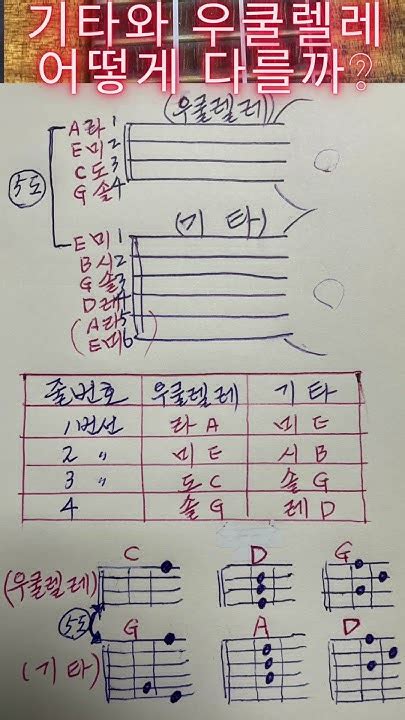 기타와 우쿨렐레
어떻게 다를까?
(우쿨렐레)
A 라 1
E 미 2
C 도 3
G 솔 4
5도
(기 타)
E 미 1
B 시 2
G 솔 3
D 레 4
(A 라 5
E 미 6)
줄번호 우쿨렐레 기 타
1번선 라 A 미 E
2 〃 미 E 시 B
3 〃 도 C 솔 G
4 솔 G 레 D
C D G
(우쿨렐레)
5도
G A D
(기 타)